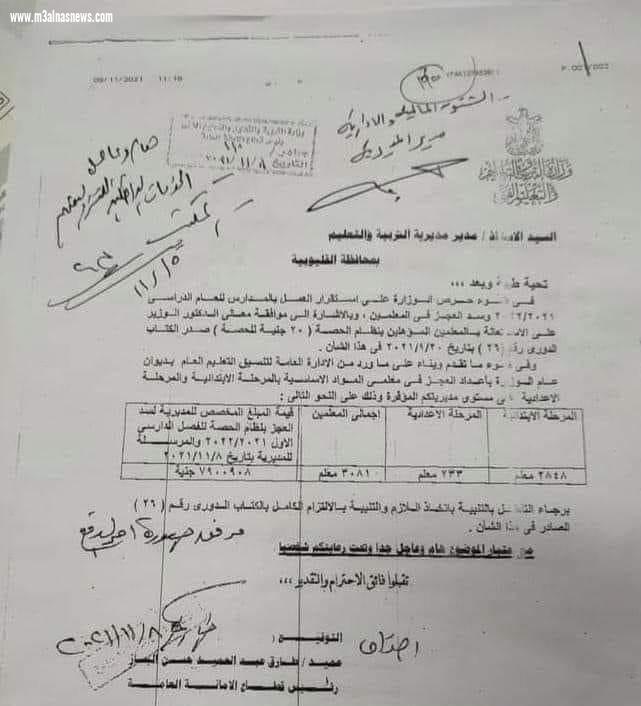 www.m3alnasnews.com
09/11/2021 11:18
الشئون المالية والادارية
مدير المديرية
وزارة التربية والتعليم
التاريخ ٢٠٢١/١١/٨
هام وعاجل
١١/١٥
السيد الاستاذ / مدير مديرية التربية والتعليم
بمحافظة القليوبية
تحية طيبة وبعد ،،،
فى ضوء حرص الوزارة على استقرار العمل بالمدارس للعام الدراسى
٢٠٢٢/٢٠٢١ وسد العجز فى المعلمين ، وبالاشارة الى موافقة معالى الدكتور الوزير
على الاستعانة بالمعلمين المؤهلين بنظام الحصة ( ٢٠ جنية للحصة ) صدر الكتاب
الدورى رقم (٢٦) بتاريخ ٢٠٢١/١/٢٠ فى هذا الشأن .
وفى ضوء ما تقدم وبناء على ما ورد من الادارة العامة لتنسيق التعليم العام بديوان
عام الوزارة بأعداد العجز فى معلمى المواد الاساسية بالمرحلة الابتدائية والمرحلة
الاعدادية على مستوى مديريتكم الموقرة وذلك على النحو التالى :
المرحلة الابتدائية المرحلة الاعدادية إجمالى المعلمين قيمة المبلغ المخصص للمديرية لسد
العجز بنظام الحصة للفصل الدارسى
الاول ٢٠٢٢/٢٠٢١ والمرسلة
للمديرية بتاريخ ٢٠٢١/١١/٨
٢٨٤٨ معلم ٧٣٣ معلم ٣٠٨١ معلم ٧٩٠٠٩٠٨ جنية
برجاء التفضل بالتنبية باتخاذ اللازم والتنبية بالالتزام الكامل بالكتاب الدورى رقم ( ٢٦ )
الصادر فى هذا الشأن .
مرفق صورة
اعتبار الموضوع هام وعاجل جدا وتحت رعايتكم شخصيا
تقبلوا فائق الاحترام والتقدير ،،،
٢٠٢١/١١/٨
التوقيع (
عميد / طارق عبد الحميد حسن
رئيس قطاع الامانة العامة